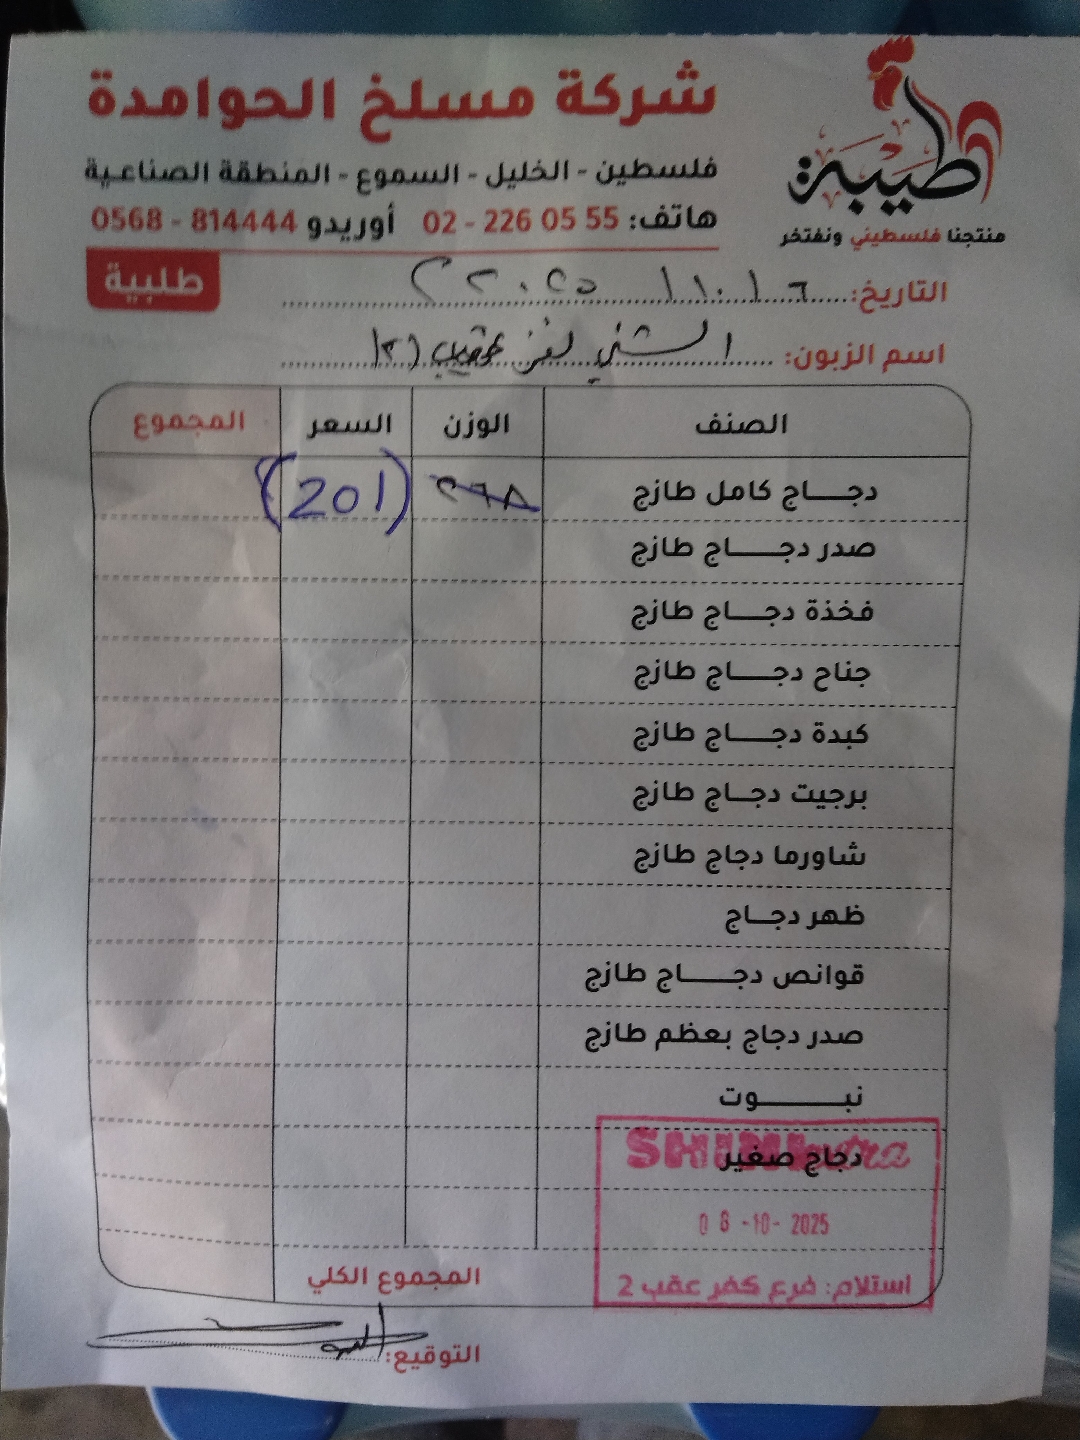 شركة مسلخ الحوامدة
فلسطين - الخليل - السموع - المنطقة الصناعية
هاتف: 02 - 226 05 55 أوريدو 0568 - 814444
طيبة
منتجنا فلسطيني ونفتخر
طلبية
التاريخ: ٦ / ١٠ / ٢٠٢٥
اسم الزبون: الشني عقب (٢)
الصنف الوزن السعر المجموع
دجاج كامل طازج ٢٦٨ (201)
صدر دجاج طازج
فخذة دجاج طازج
جناح دجاج طازج
كبدة دجاج طازج
برجيت دجاج طازج
شاورما دجاج طازج
ظهر دجاج
قوانص دجاج طازج
صدر دجاج بعظم طازج
نبوت
دجاج صغير
SHINI extra
06 -10- 2025
استلام: فرع كفر عقب 2
المجموع الكلي
التوقيع: